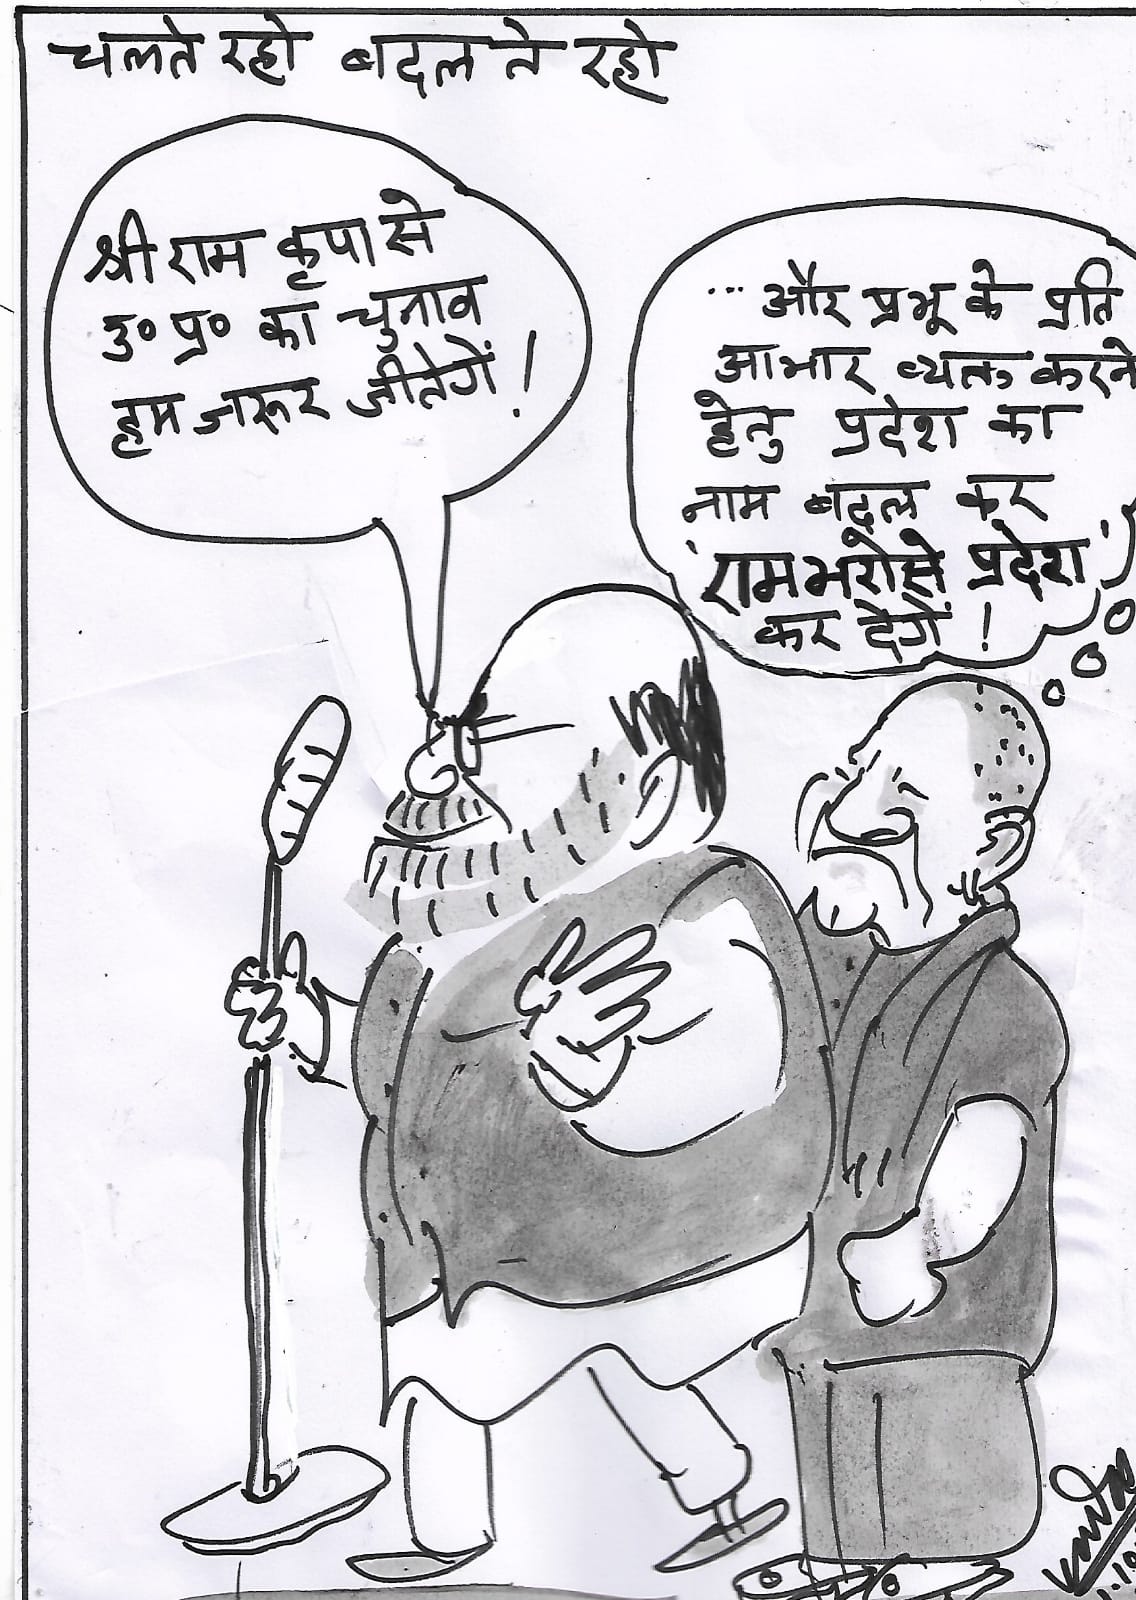 चलते रहो बदल ते रहो
श्री राम कृपा से
उ॰ प्र॰ का चुनाव
हम जरूर जीतेगें!
...और प्रभू के प्रति
आभार व्यक्त करने
हेतु प्रदेश का
नाम बदल कर
'रामभरोसे प्रदेश'
कर देगें!